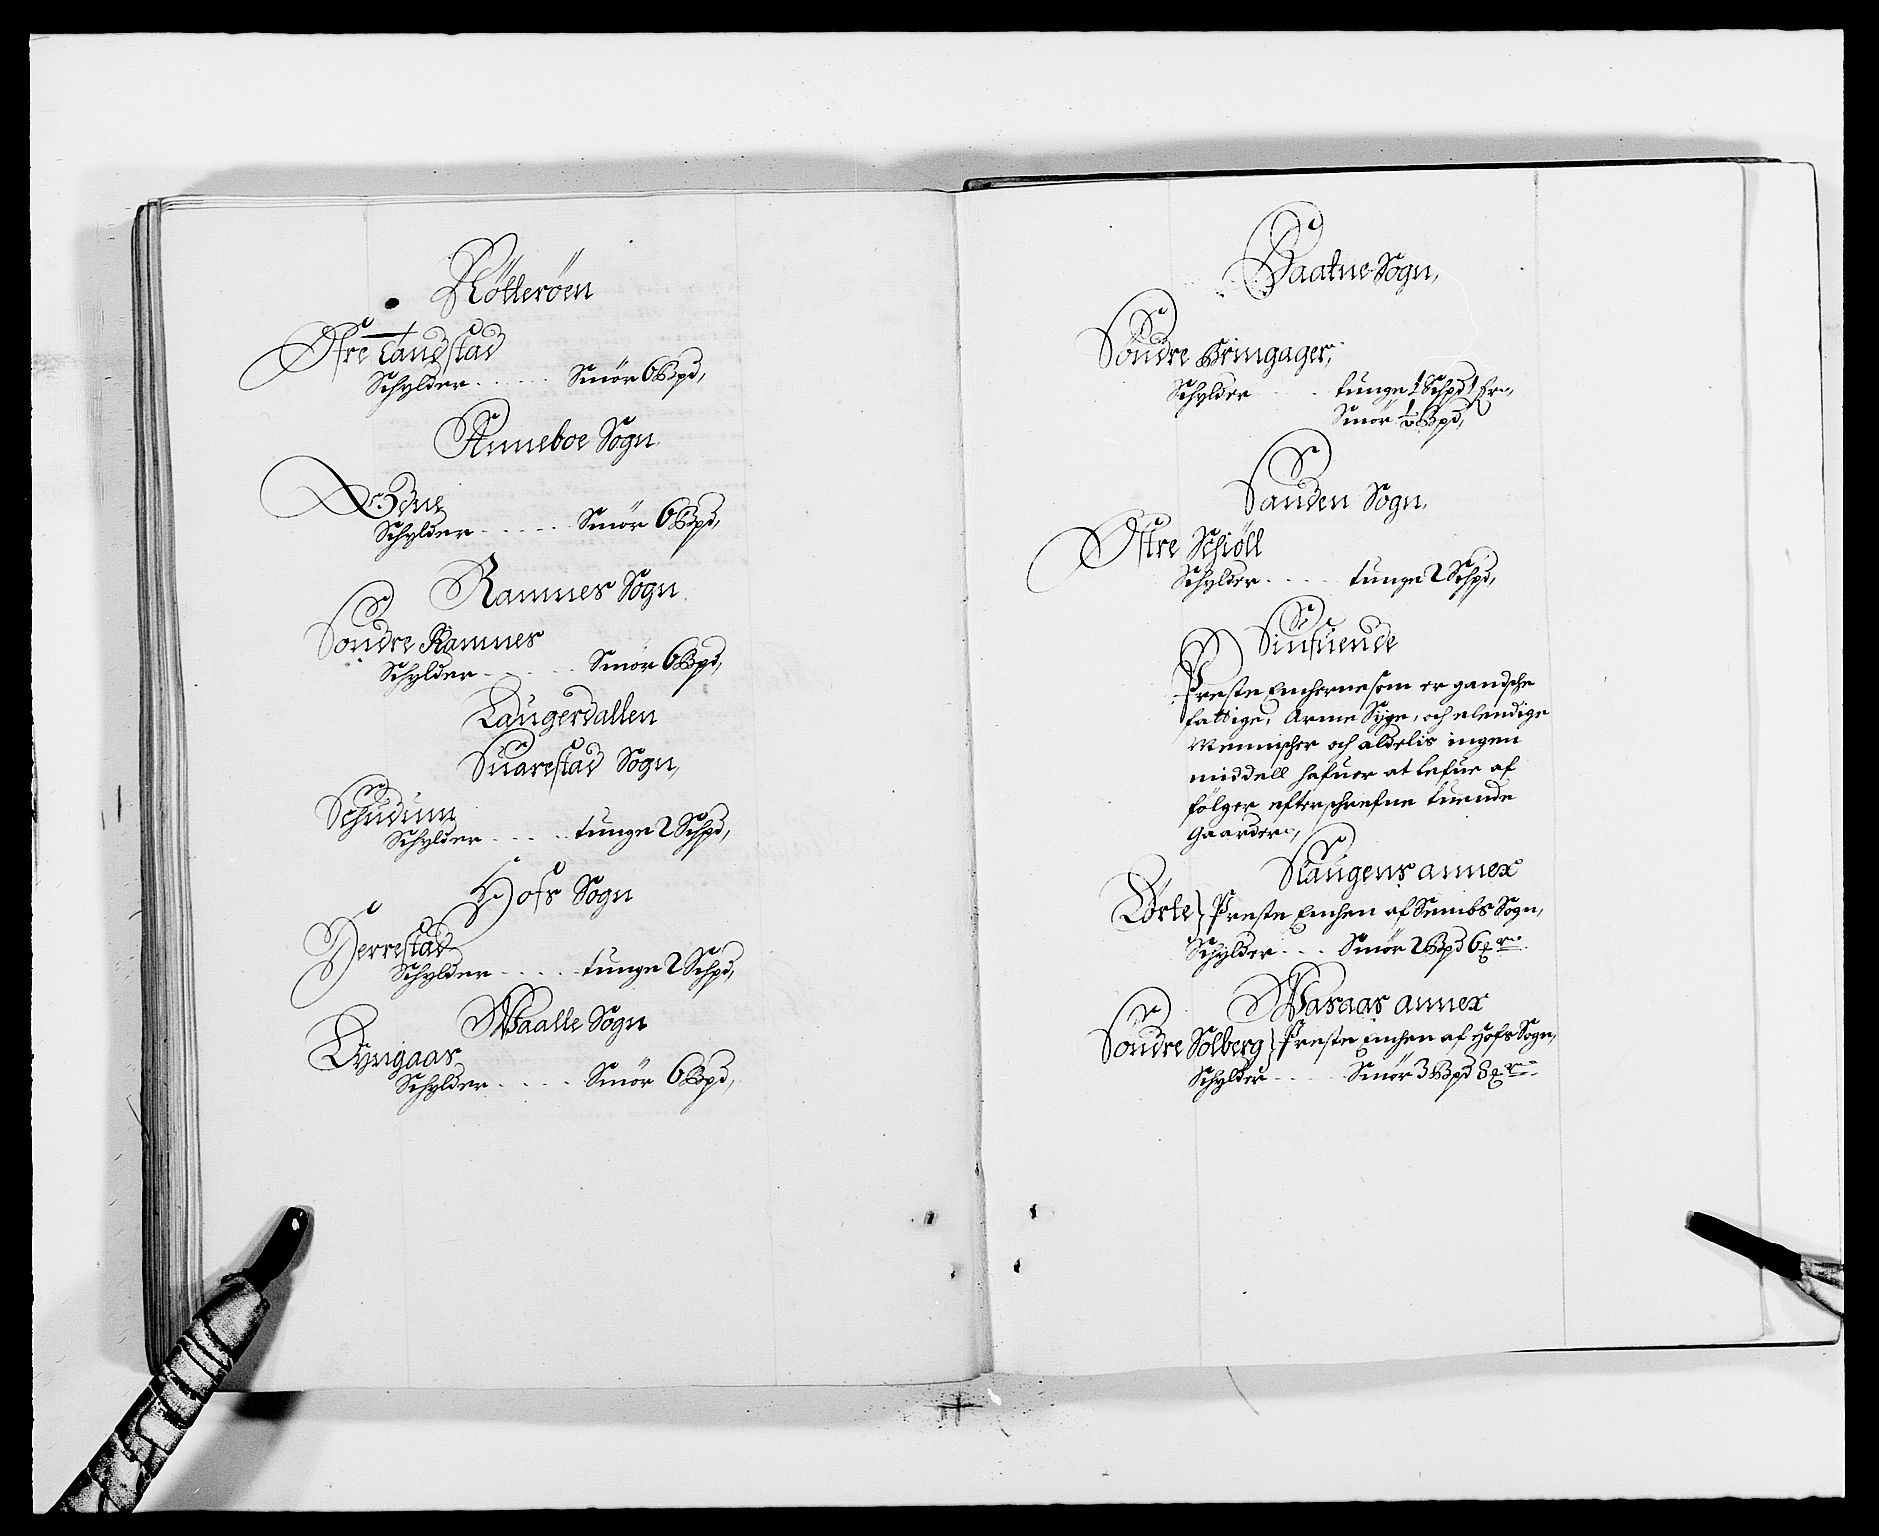 Nötteröen
Östre Tandstad
Schylder . . . . . Smör 6 Bpd,
Anneboe Sogn
Schylder . . . . . Smör 6 Bpd,
Ramnes Sogn
Söndre Ramnes
Schylder . . . . . Smör 6 Bpd,
Laugerdallen
Suarestad Sogn,
Schudum
Schylder . . . . . tunge 2 Schpd,
Hofs Sogn
Herrestad
Schylder . . . . . tunge 2 Schpd,
Waalle Sogn
Lyngaas
Schylder . . . . . Smör 6 Bpd,
Baatne Sogn,
Söndre Bringager,
Schylder . . . tunge 1 Schpd 1
Smör ½ Bpd,
Sanden Sogn.
Östre Schiöll
Schylder . . . . . tunge 2 Schpd,
Siufuende
Preste Enckerne som er gandsche
fattige, Arme Syge, och elendige
Mennischer och aldelis ingen
middell hafuer at lefue af
fölger efterschrefne tuende
Gaarder,
Slaugens annex
Lörte } Preste Enchen af Sembs Sogn,
Schylder . . . Smör 2 Bpd 6 r.
Wasaas annex
Söndre Solberg } Preste Enchen af Hofs Sogn,
Schylder . . . . Smör 3 Bpd 8 r.